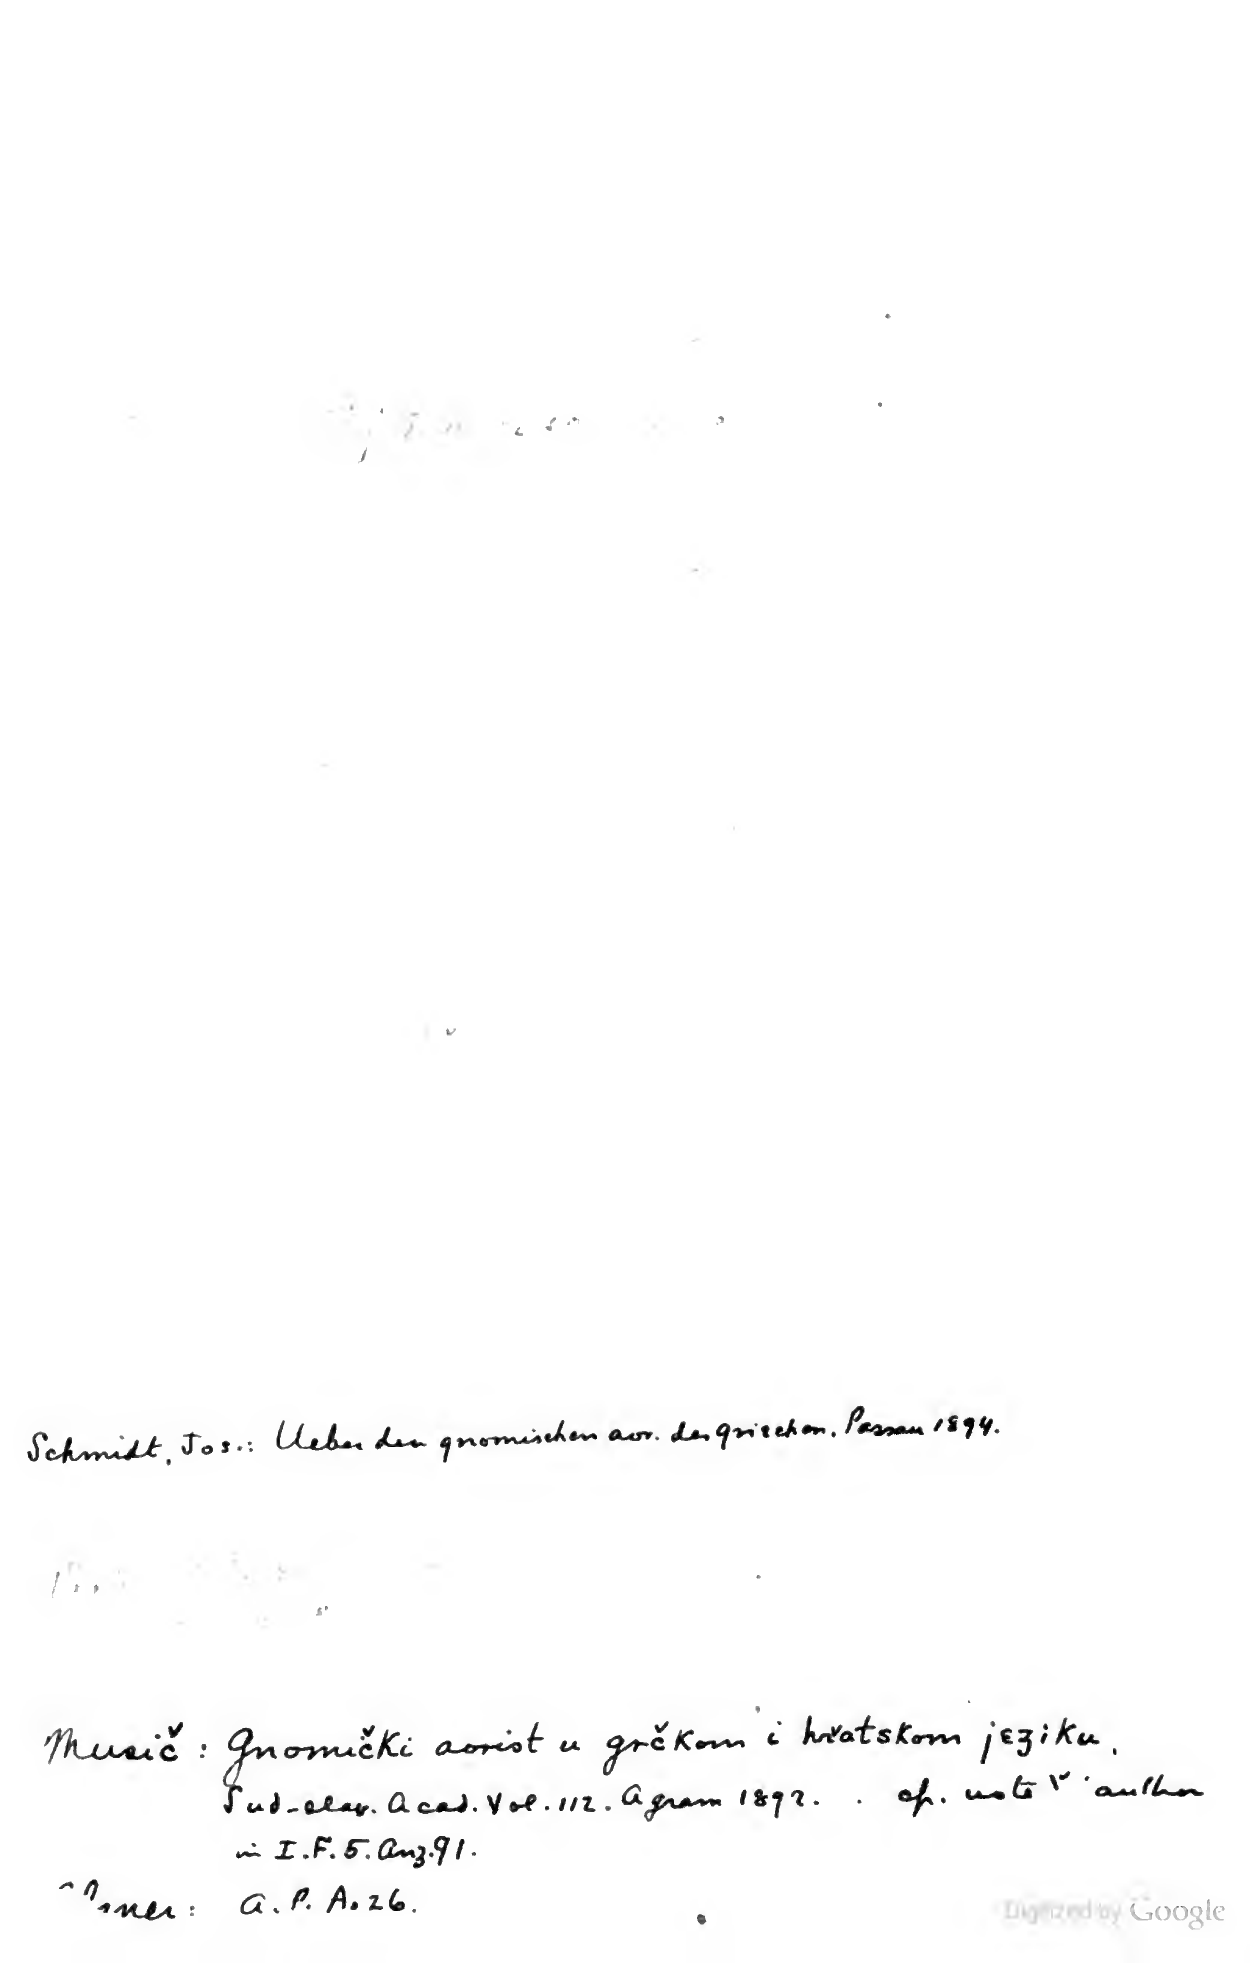 Schmidt, Jos.: Ueber den gnomischen aor. der griechen. Passau 1894.
Musič: Gnomički aorist u grčkom i hrvatskom jeziku.
Sud-slav. Acad. Vol. 112. Agram 1892. . cp. note author
in I.F. 5. Anz. 91.
A. P. A. 26.
Digitized by Google